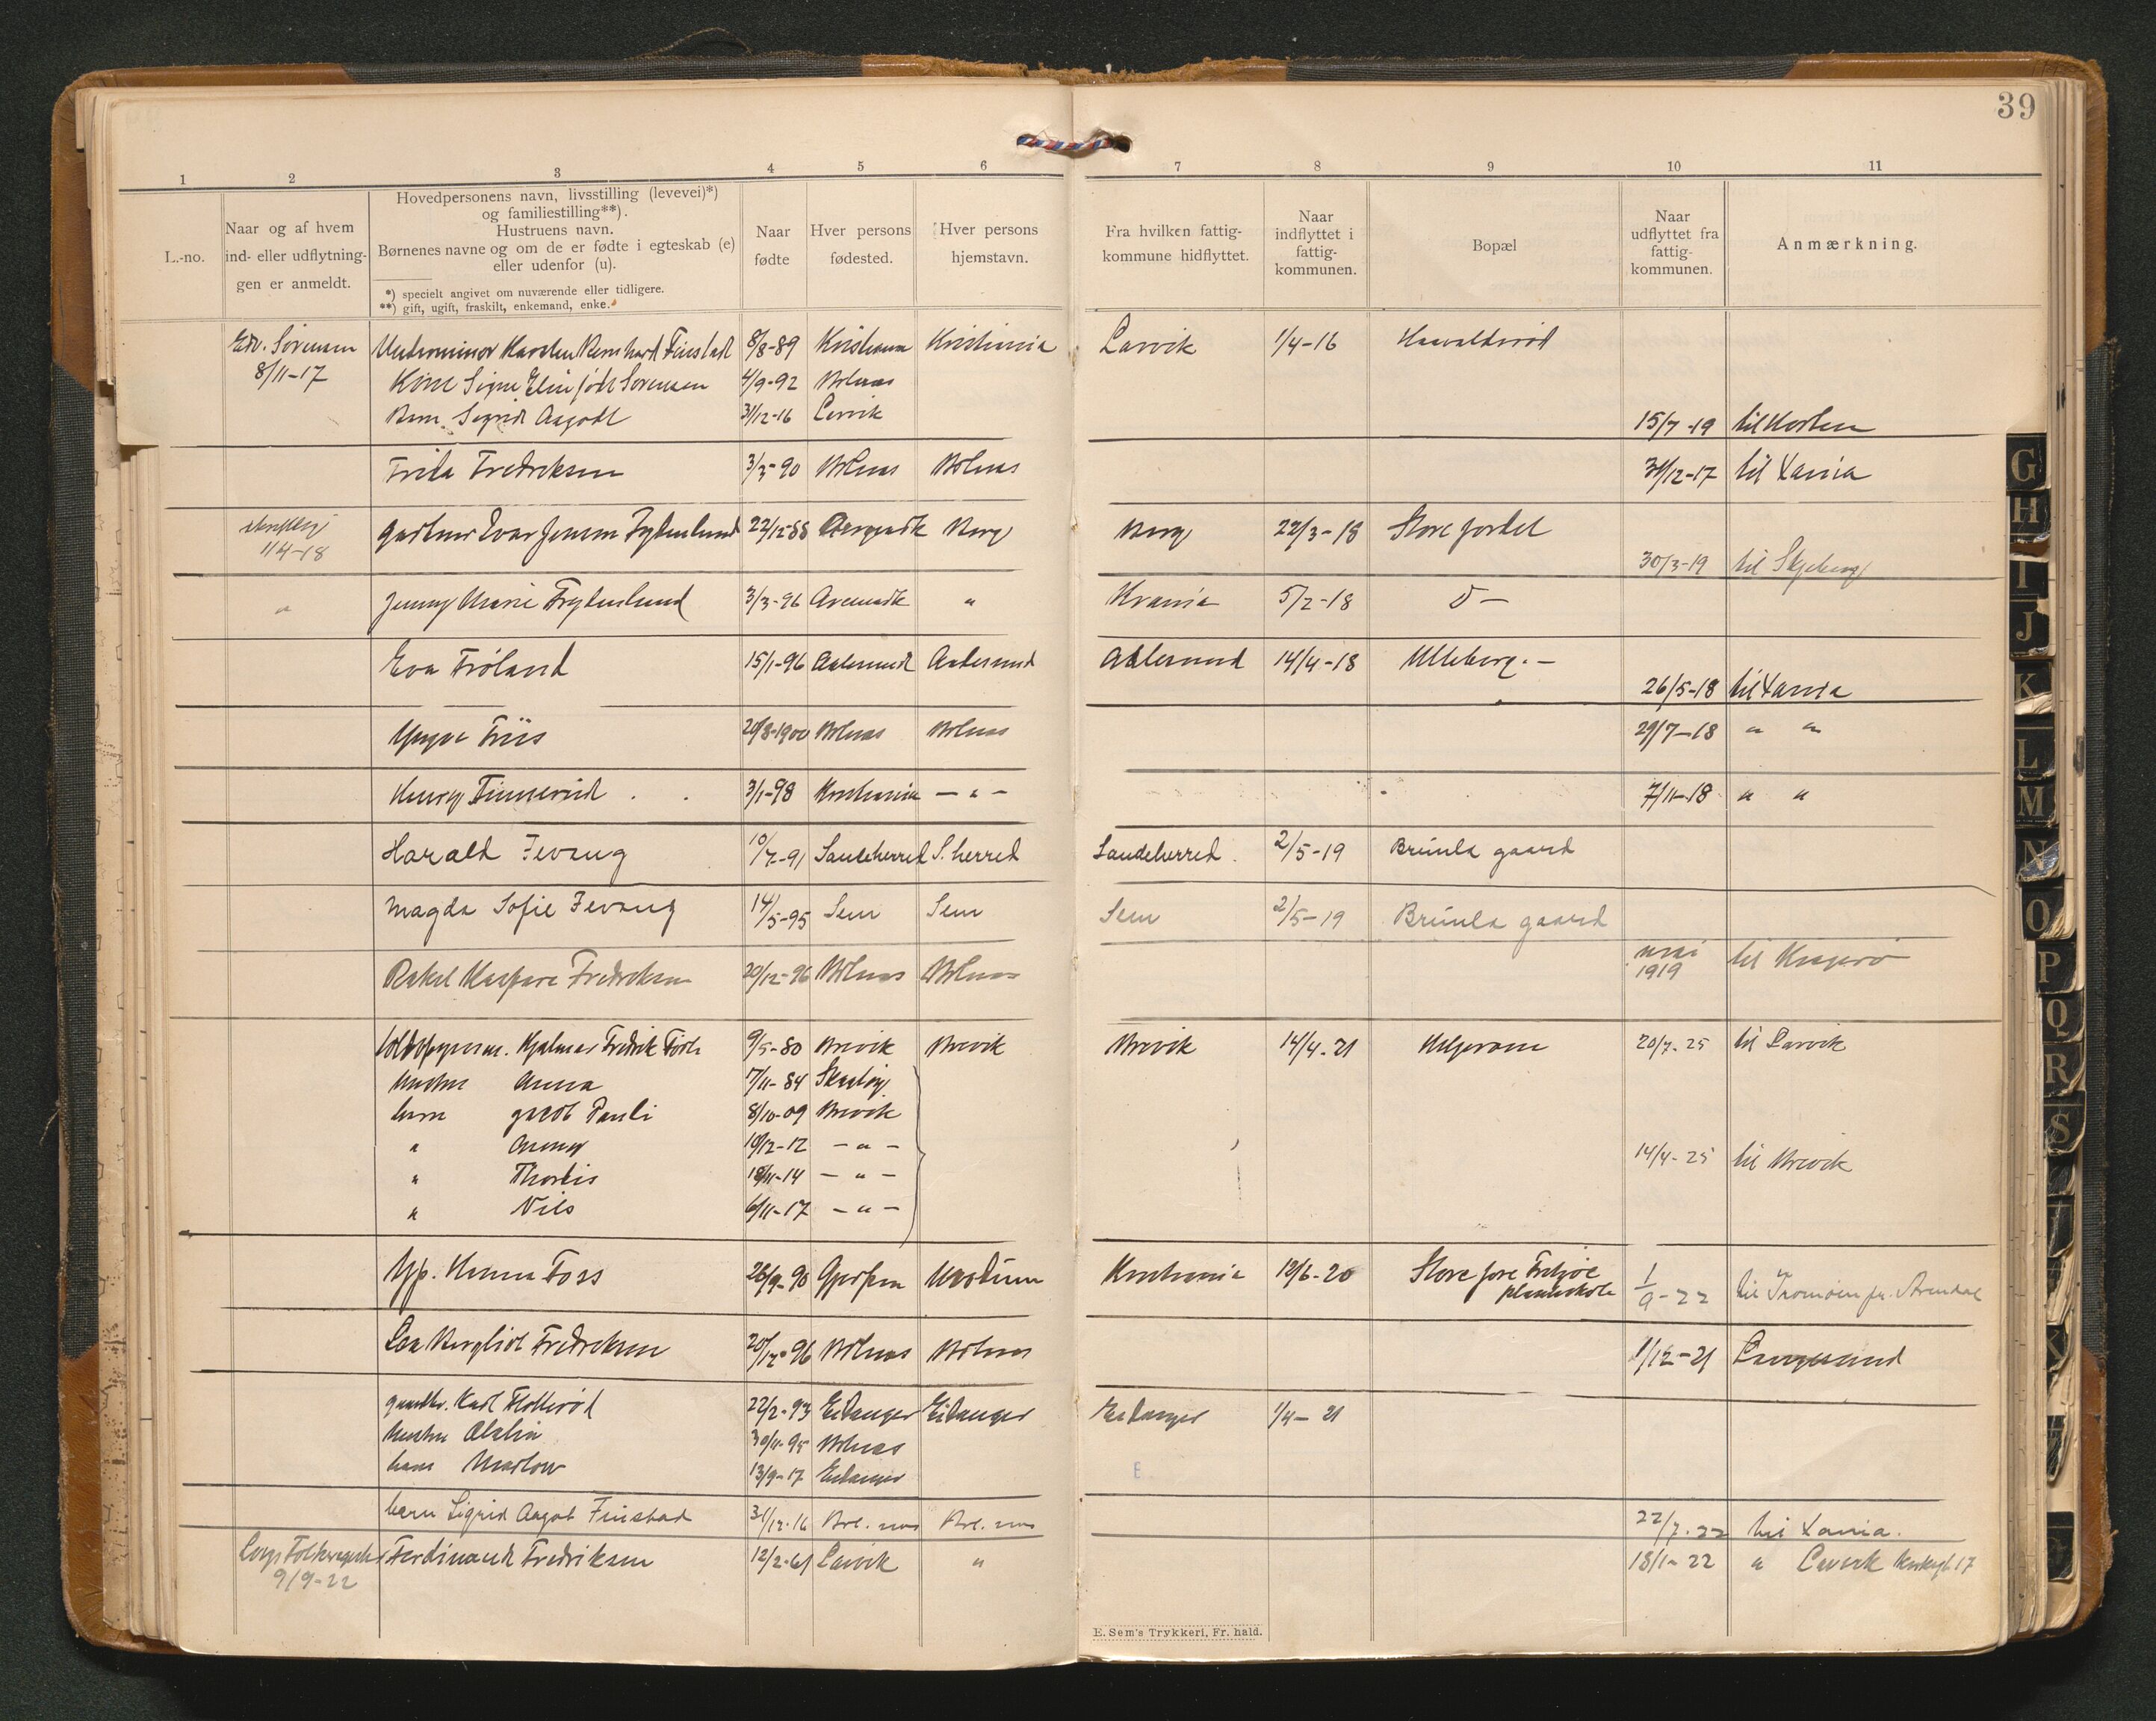 39
1 2 3 4 5 6 7 8 9 10 11
L.-no.
Naar og af hvem
ind- eller udflytnin-
gen er anmeldt.
Hovedpersonens navn, livsstilling (levevei)*)
og familiestilling**).
Hustruens navn.
Børnenes navne og om de er fødte i egteskab (e)
eller udenfor (u).
*) specielt angivet om nuværende eller tidligere.
**) gift, ugift, fraskilt, enkemand, enke.
Naar
fødte
Hver persons
fødested.
Hver persons
hjemstavn.
Fra hvilken fattig-
kommune hidflyttet.
Naar
indflyttet i
fattig-
kommunen.
Bopæl
Naar
udflyttet fra
fattig-
kommunen.
Anmærkning.
Edv. Sørensen Karsten Bernhard Finstad 8/8-89 Kristiania Kristiania Larvik 1/4-16
8/11-17 Kone Signe Elin født Sørensen 4/9-92 Brlnæs
Barn Sigrid Aagodt 31/12-16 Larvik 15/7-19 til Horten
Frida Fredriksen 3/3-90 Brlnæs Brlnæs 31/12-17 til Xania
11/4-18 Gartner Evar Jensen 22/12-88 Berg Berg 22/3-18 Store jordet
30/3-19 til Skjeberg
" Jenny Marie 3/3-96 " Krania 5/2-18 D-
Eva Frøland 15/1-96 Aalesund Aalesund Aalesund 14/4-18 Ulleberg.-
26/5-18 til Xania
Yngve Friis 20/8-1900 Brlnæs Brlnæs 29/7-18 " "
Henry 3/1-98 Kristiania - " - 7/11-18 " "
Harald Fevang 10/7-91 Sandeherred S. herred Sandeherred. 2/5-19 Brünla gaard
Magda Sofie Fevang 14/5-95 Sem Sem Sem 2/5-19 Brünla gaard
Rakel Kaspara Fredriksen 20/12-96 Brlnæs Brlnæs mai 1919 til Kragerø
Hjalmar Fredrik 9/5-80 Brevik Brevik Brevik 14/4-21 Helgeroa 20/7-25 til Larvik
Hustru Anna 7/11-84
barn Jacob Pauli 8/10-09 Brevik
" 10/12-12 - " -
14/4-25 til Brevik
" Thordis 18/11-14 - " -
" Nils 6/11-17 - " -
Hanna Foss 26/9-90 Gjerpen Kristiania 12/6-20 Store jore Fritzøe
planteskole 1/9-22 til Tromøen pr. Arendal
Lea Bergliot Fredriksen 20/12-96 Brlnæs Brlnæs 1/12-21 Langesund
gaardbr. Karl 22/2-93 Eidanger Eidanger Eidanger 1/4-21
Hustru 30/11-95 Brlnæs
barn 13/9-17 Eidanger
barn Sigrid Aagot Finstad 31/12-16 Brl. næs Brl. næs 22/7-22 til Xania.
Ferdinand Fredriksen 12/2-61 Larvik " 18/1-22 " Larvik
9/9-22
E. Sem's Trykkeri, Fr. hald.
G
H
I
J
K
L
M
N
O
P
Q
R
S